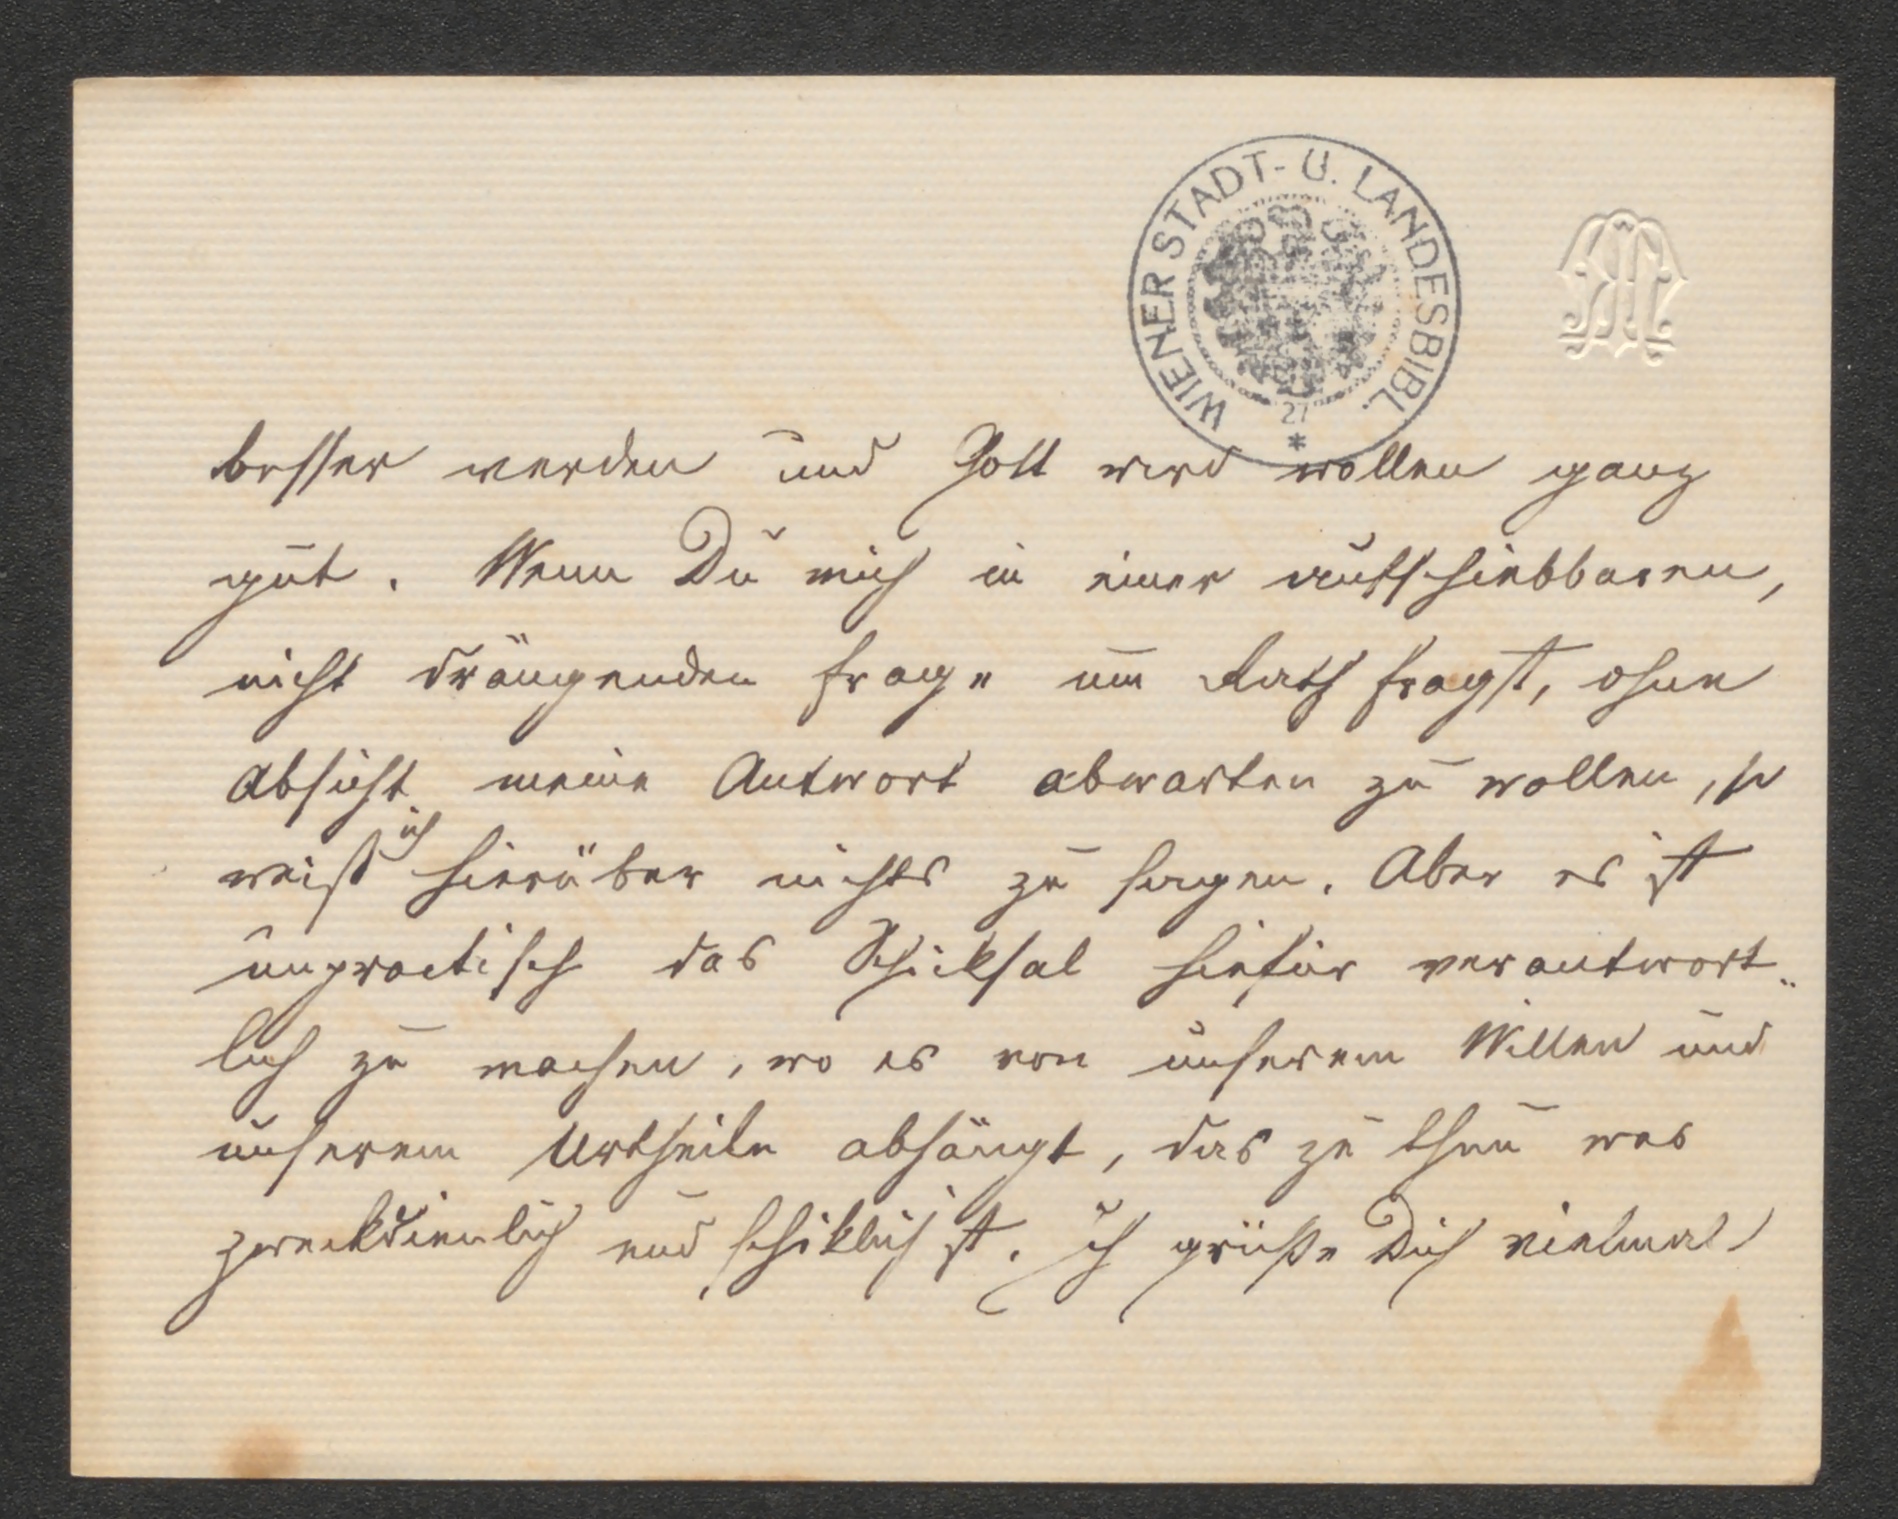 WIENER STADT- U. LANDESBIBL.
27
*
besser werden und Gott wird wollen ganz
gut. Wenn Du mich in einer aufschiebbaren,
nicht drängenden Frage um Rath fragst, ohne
Absicht meine Antwort abwarten zu wollen, so
weiß ich hierüber nichts zu sagen. Aber es ist
unpractisch das Schicksal hiefür verantwort-
lich zu machen, wo es von unserem Willen und
unserem Urtheile abhängt, das zu thun was
zweckdienlich und schiklich ist. Ich grüße Dich vielmal